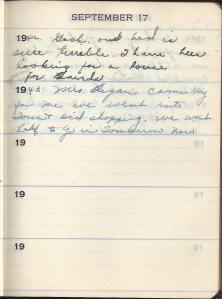 SEPTEMBER 17
1942. Gosh, our bed is
sure terrible. I have been
looking for a house
for
1943. Mrs. Regan came by
for me we went into
Town & did shopping. we wont
half to go in Tomorrow now.
19
19
19